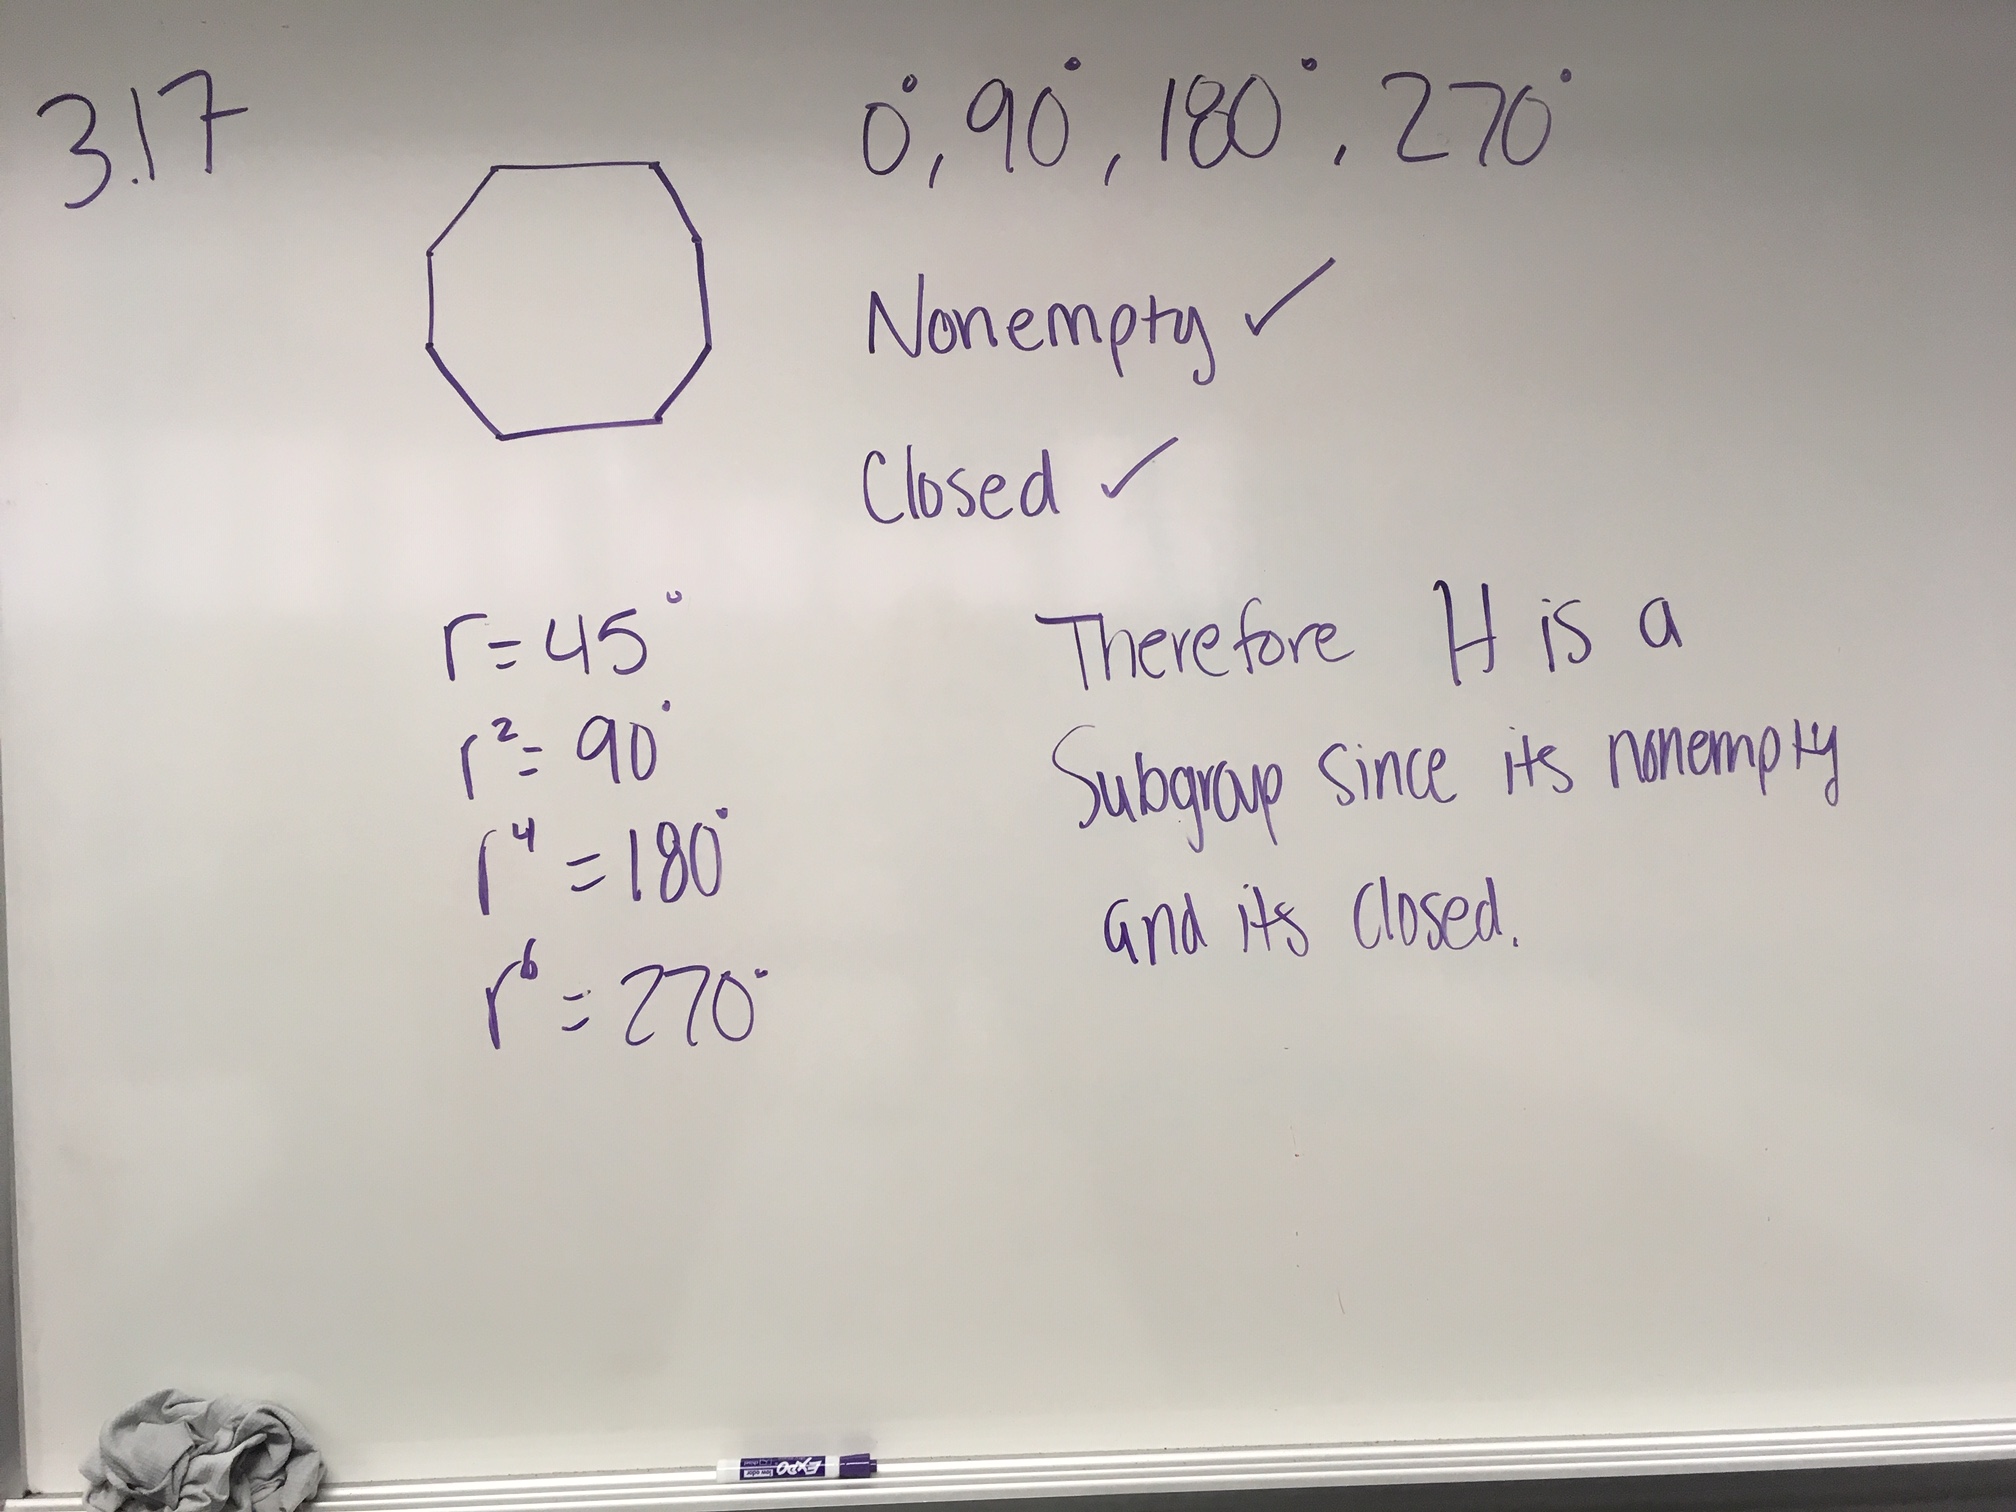 3.17
0°, 90°, 180°, 270°
Nonempty ✓
Closed ✓
r = 45°
r² = 90°
r⁴ = 180°
r⁶ = 270°
Therefore H is a
Subgroup since its nonempty
and its closed.
EXPO